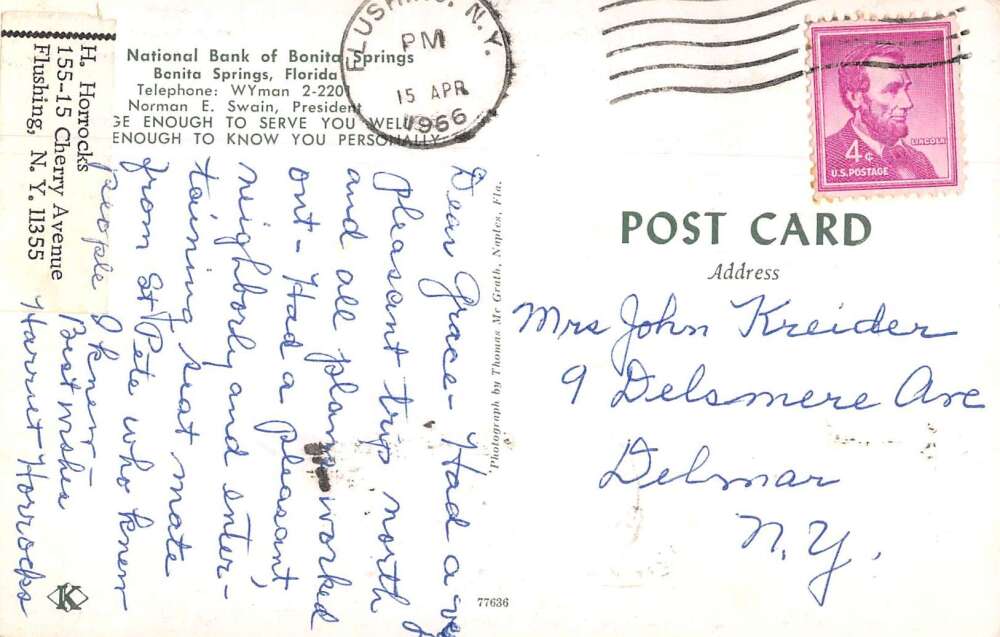 H. Horrocks
155-15 Cherry Avenue
Flushing, N. Y. 11355
National Bank of Bonita Springs
Bonita Springs, Florida
Telephone: WYman 2-2201
Norman E. Swain, President
GE ENOUGH TO SERVE YOU WELL
ENOUGH TO KNOW YOU PERSONALLY
FLUSHING, N.Y.
PM
15 APR
1966
LINCOLN
4¢
U.S. POSTAGE
POST CARD
Address
Mrs John Kreider
9 Delsmere Ave
Delmar
N.Y.
Dear Grace - Had a
pleasant trip north
and all plans worked
out - Had a pleasant,
neighborly and enter-
taining seat mate
from St Pete who knew
people I knew -
Best wishes
Harriet Horrocks
Photograph by Thomas Mc Grath, Naples, Fla.
K
77636